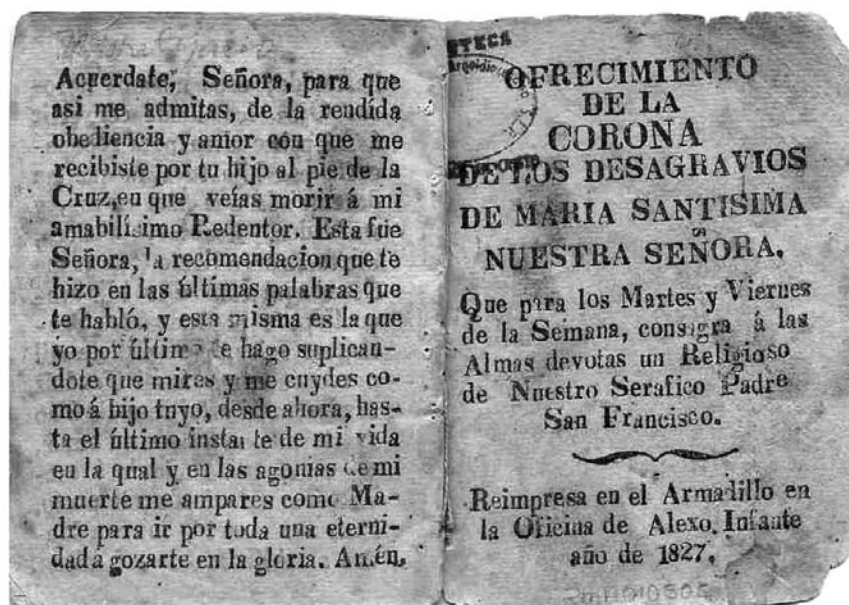 Acuerdate, Señora, para que
asi me admitas, de la rendida
obediencia y amor con que me
recibiste por tu hijo al pie de la
Cruz, en que veías morir á mi
amabilísimo Redentor. Esta fue
Señora, la recomendacion que te
hizo en las últimas palabras que
te habló, y esta misma es la que
yo por último te hago suplican-
dote que mires y me cuydes co-
mo á hijo tuyo, desde ahora, has-
ta el último instante de mi vida
en la qual y en las agonias de mi
muerte me ampares como Ma-
dre para ir por toda una eterni-
dad a gozarte en la gloria. Amén.
OFRECIMIENTO
DE LA
CORONA
DE LOS DESAGRAVIOS
DE MARIA SANTISIMA
NUESTRA SEÑORA.
Que para los Martes y Viernes
de la Semana, consagra á las
Almas devotas un Religioso
de Nuestro Serafico Padre
San Francisco.
Reimpresa en el Armadillo en
la Oficina de Alexo Infante
año de 1827.